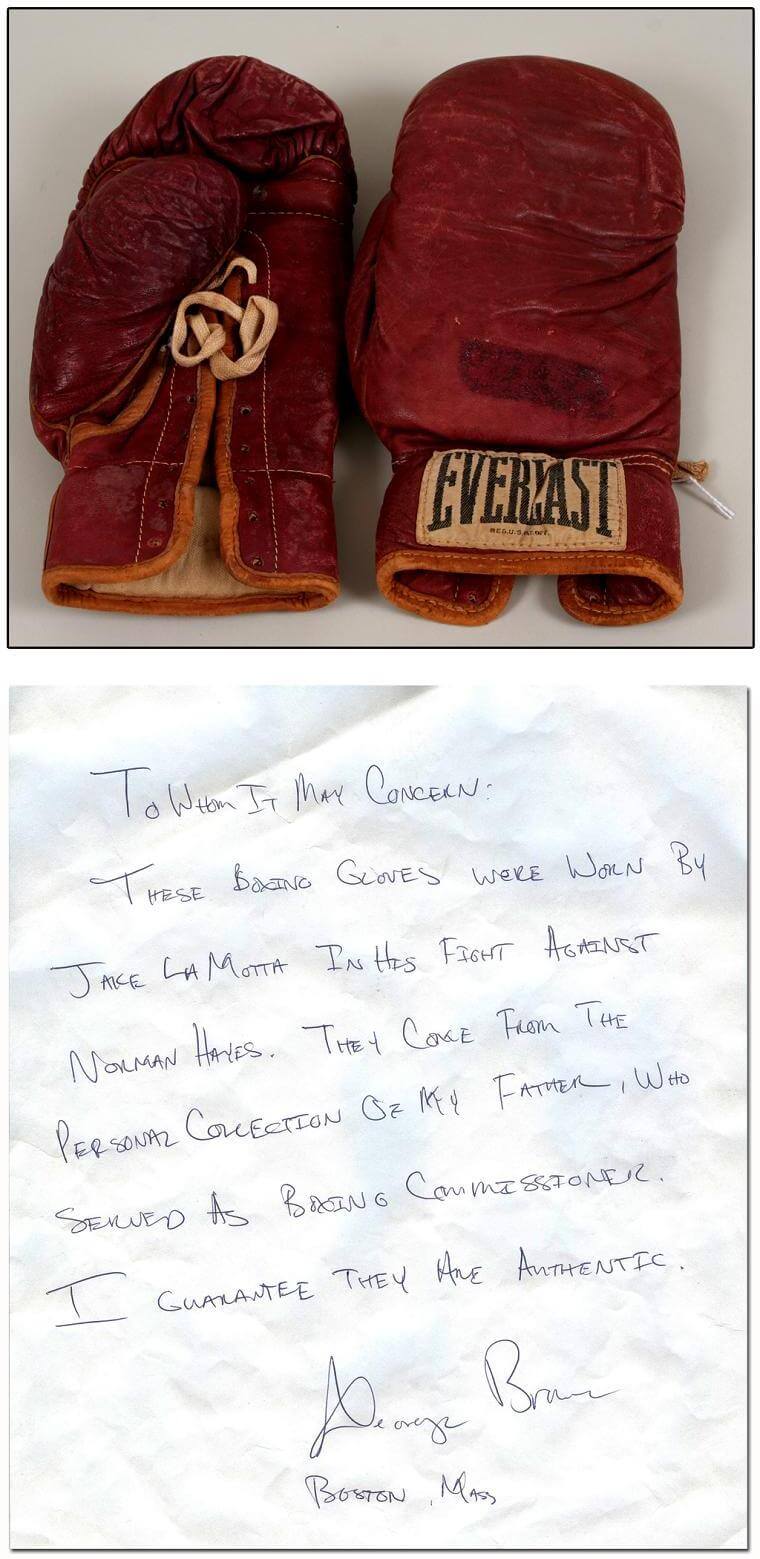 EVERLAST
REG.U.S.PAT.OFF.
To Whom It May Concern:
These Boxing Gloves were Worn By
Jake LaMotta In His Fight Against
Norman Hayes. They Come From The
Personal Collection Of My Father, Who
Served As Boxing Commissioner.
I guarantee they Are Authentic.
George Brown
Boston, Mass